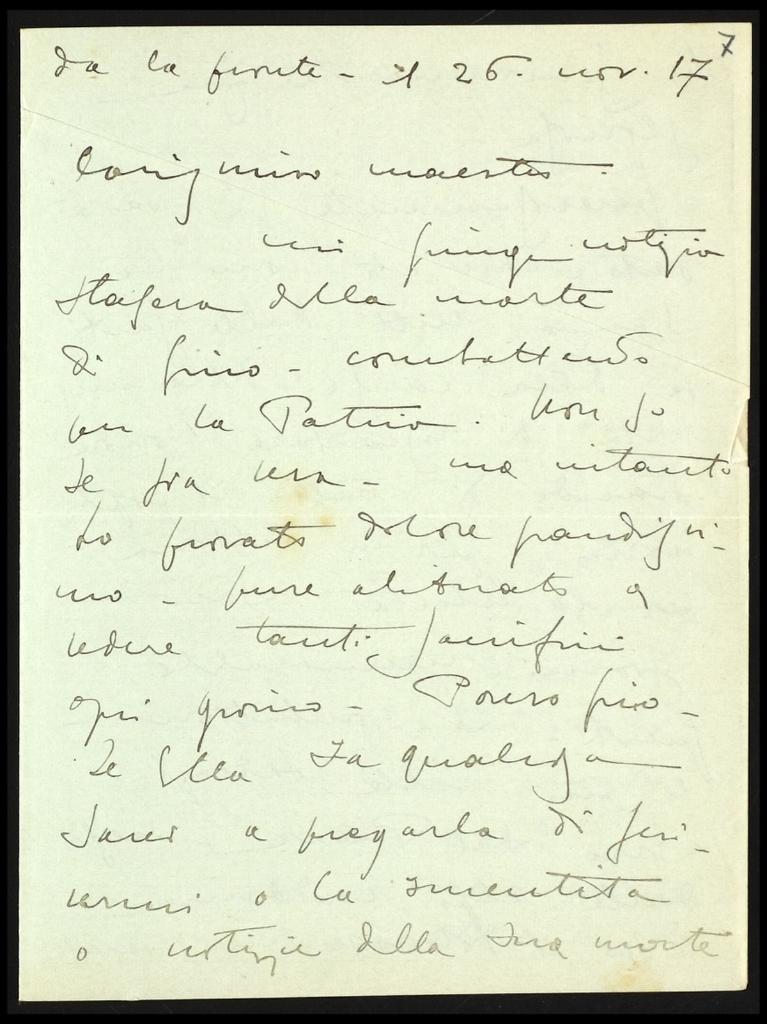 7
da la fronte - il 26. nov. 17
Carissimo maestro.
mi giunge notizia
stasera della morte
di Gino - combattendo
per la Patria. Non so
se sia vera - ma intanto
ho provato dolore grandissi-
mo - pure abituato a
vedere tanti sacrifici
ogni giorno - Povero Gino -
Se Ella sa qualcosa
sarei a pregarla di scri-
vermi o la smentita
o notizie della sua morte